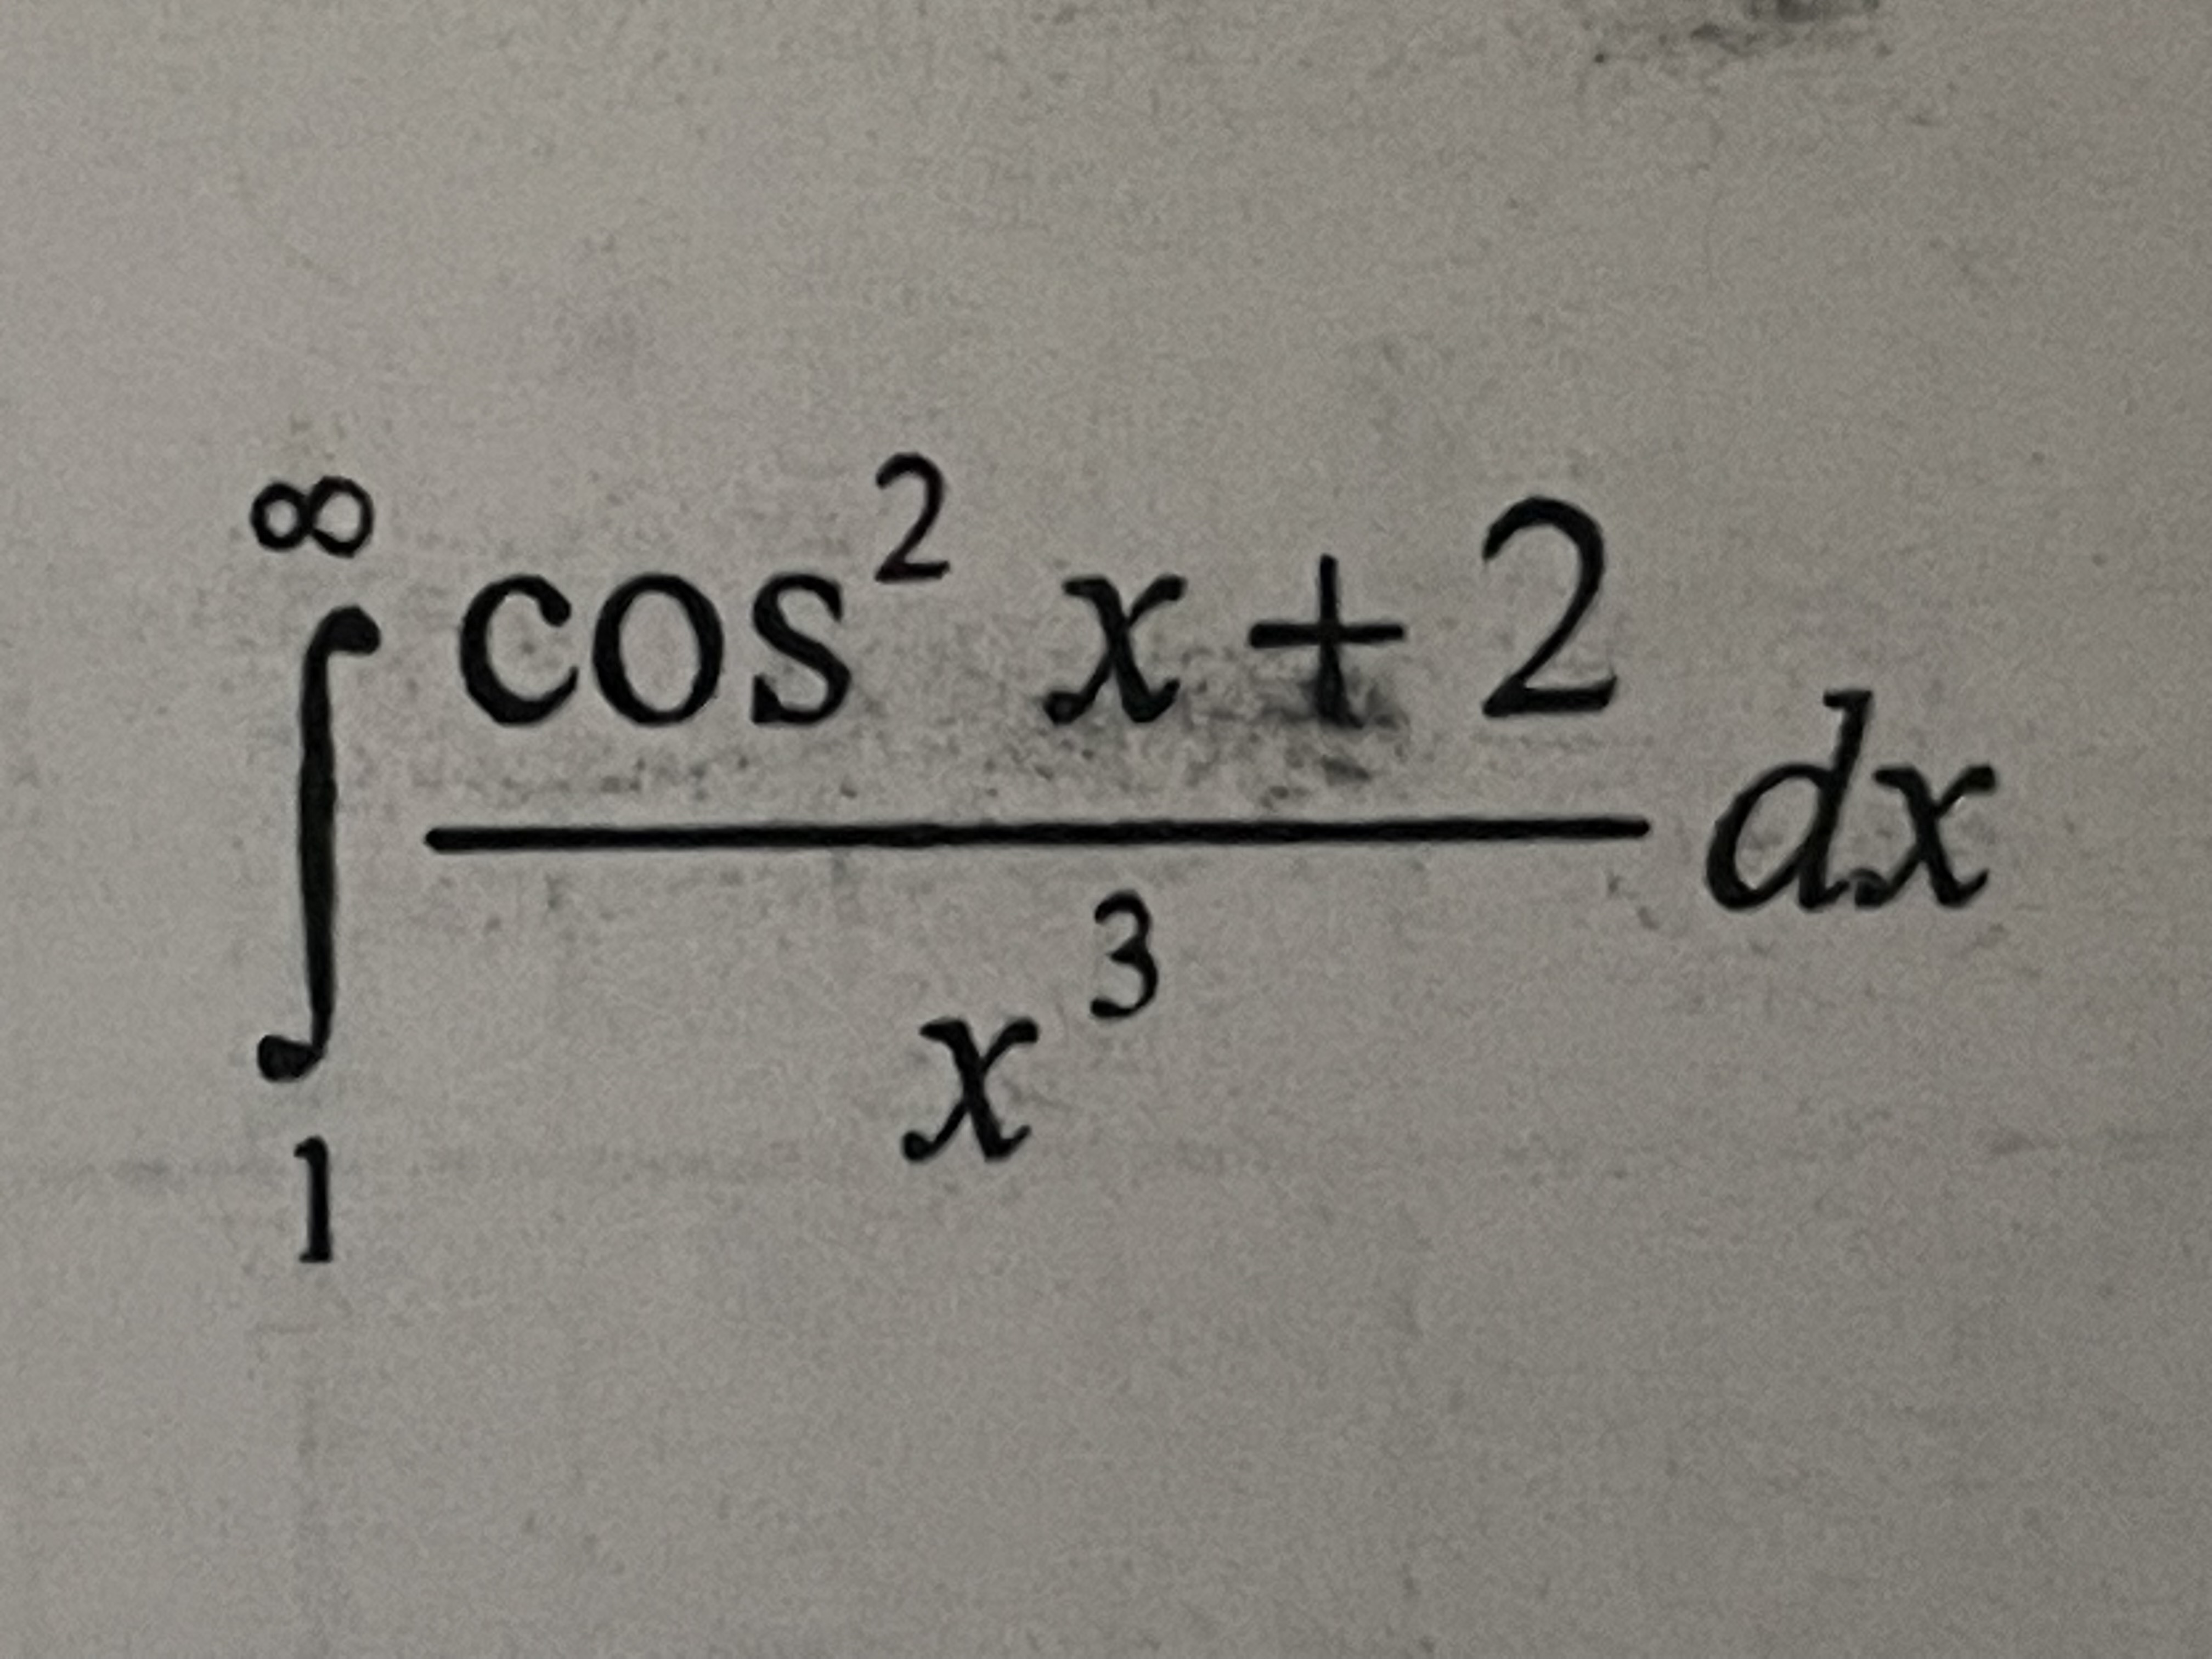 ∫₁^∞ (cos² x + 2)/x³ dx